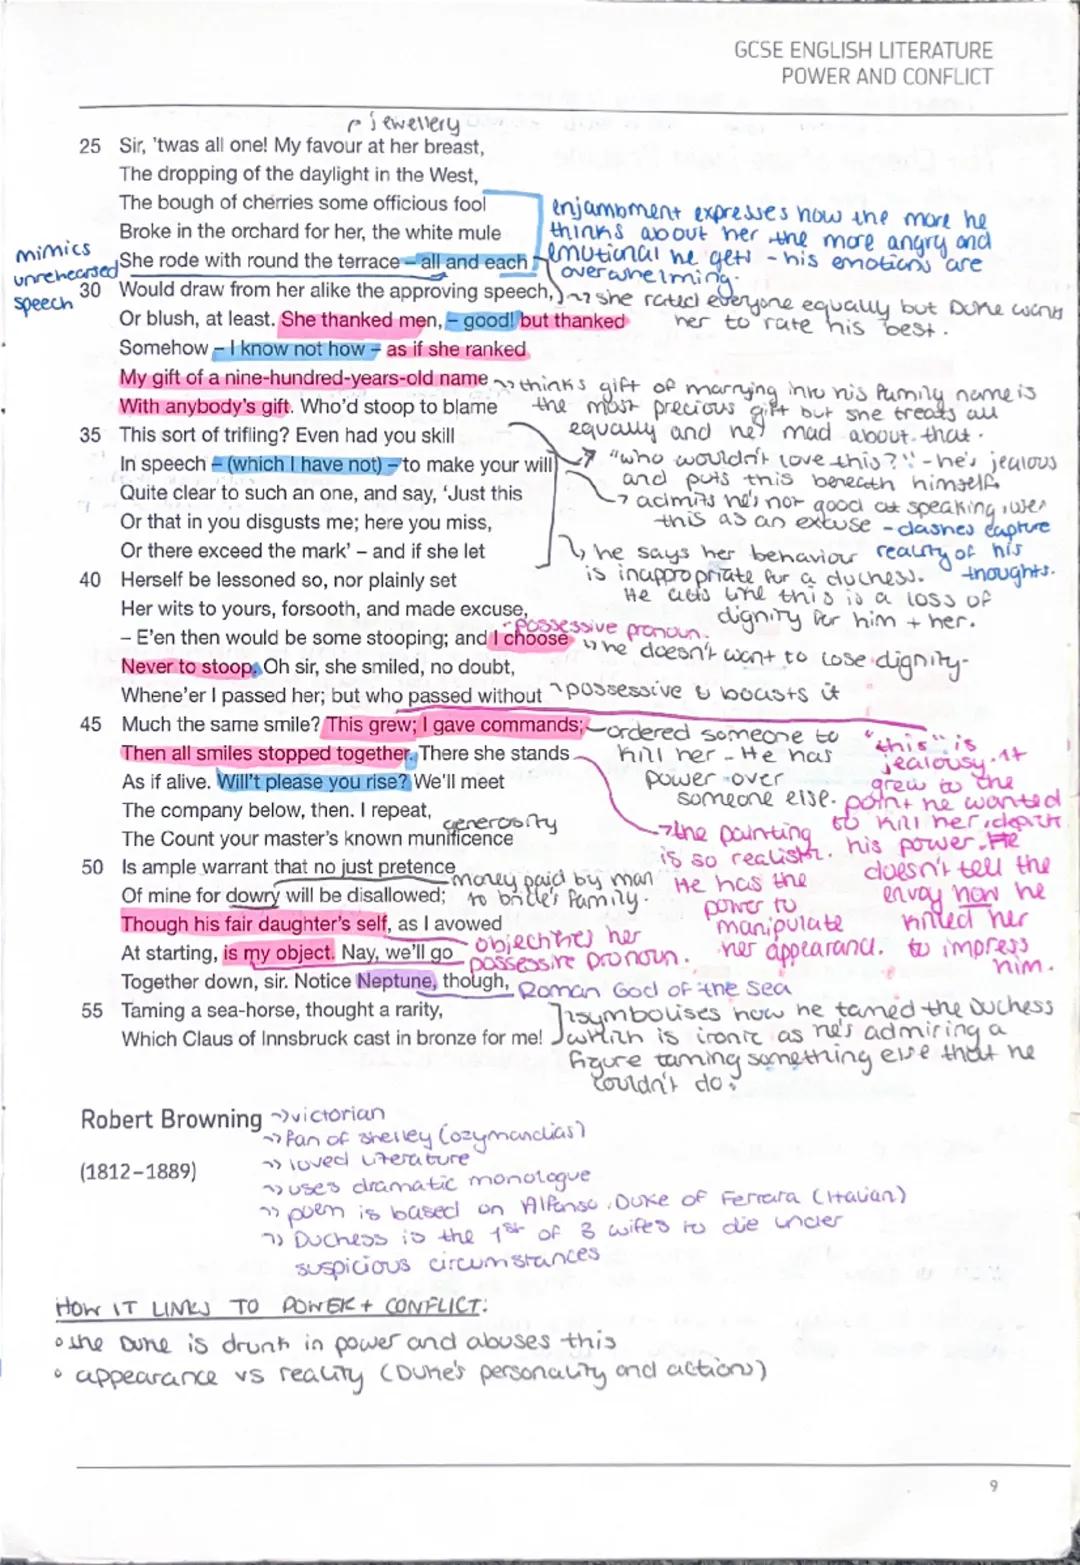 GCSE ENGLISH LITERATURE
POWER AND CONFLICT
jewellery
25 Sir, 'twas all one! My favour at her breast,
The dropping of the daylight in the West,
The bough of cherries some officious fool
Broke in the orchard for her, the white mule
She rode with round the terrace – all and each
30 Would draw from her alike the approving speech,
Or blush, at least. She thanked men, – good! but thanked
Somehow – I know not how – as if she ranked
My gift of a nine-hundred-years-old name
With anybody's gift. Who'd stoop to blame
35 This sort of trifling? Even had you skill
In speech – (which I have not) – to make your will
Quite clear to such an one, and say, 'Just this
Or that in you disgusts me; here you miss,
Or there exceed the mark' – and if she let
40 Herself be lessoned so, nor plainly set
Her wits to yours, forsooth, and made excuse,
– E'en then would be some stooping; and I choose
Never to stoop. Oh sir, she smiled, no doubt,
Whene'er I passed her; but who passed without
45 Much the same smile? This grew; I gave commands;
Then all smiles stopped together. There she stands
As if alive. Will't please you rise? We'll meet
The company below, then. I repeat,
The Count your master's known munificence
50 Is ample warrant that no just pretence
Of mine for dowry will be disallowed;
Though his fair daughter's self, as I avowed
At starting, is my object. Nay, we'll go
Together down, sir. Notice Neptune, though,
55 Taming a sea-horse, thought a rarity,
Which Claus of Innsbruck cast in bronze for me!
mimics
unrehearsed
speech
enjambment expresses how the more he
thinks about her the more angry and
emotional he gets - his emotions are
overwhelming.
she rated everyone equally but Duke wants
her to rate his best.
thinks gift of marrying into his family name is
the most precious gift but she treats all
equally and he's mad about that.
"who wouldn't love this?" - he's jealous
and puts this beneath himself
admits he's not good at speaking, uses
this as an excuse - dashes capture
reality of his
thoughts.
he says her behaviour
is inappropriate for a duchess.
He acts like this is a loss of
dignity for him + her.
possessive pronoun.
he doesn't want to lose dignity-
possessive & boasts it
ordered someone to
kill her - He has
power over
someone else.
"this" is
jealousy. It
grew to the
point he wanted
to kill her,
his power. He
doesn't tell the
envoy how he
killed her
to impress
him.
the painting
is so realistic.
He has the
power to
manipulate
her appearance.
generosity
money paid by man
to bride's family.
objectifies her
possessive pronoun.
Roman God of the sea
symbolises how he tamed the Duchess
which is ironic as he's admiring a
figure taming something else that he
couldn't do.
Robert Browning
(1812–1889)
victorian
fan of Shelley (ozymandias)
loved literature
uses dramatic monologue
poem is based on Alfonso, Duke of Ferrara (Italian)
Duchess is the 1st of 3 wifes to die under
suspicious circumstances
HOW IT LINKS TO POWER + CONFLICT:
• the Duke is drunk in power and abuses this
• appearance vs reality (Duke's personality and actions)
9